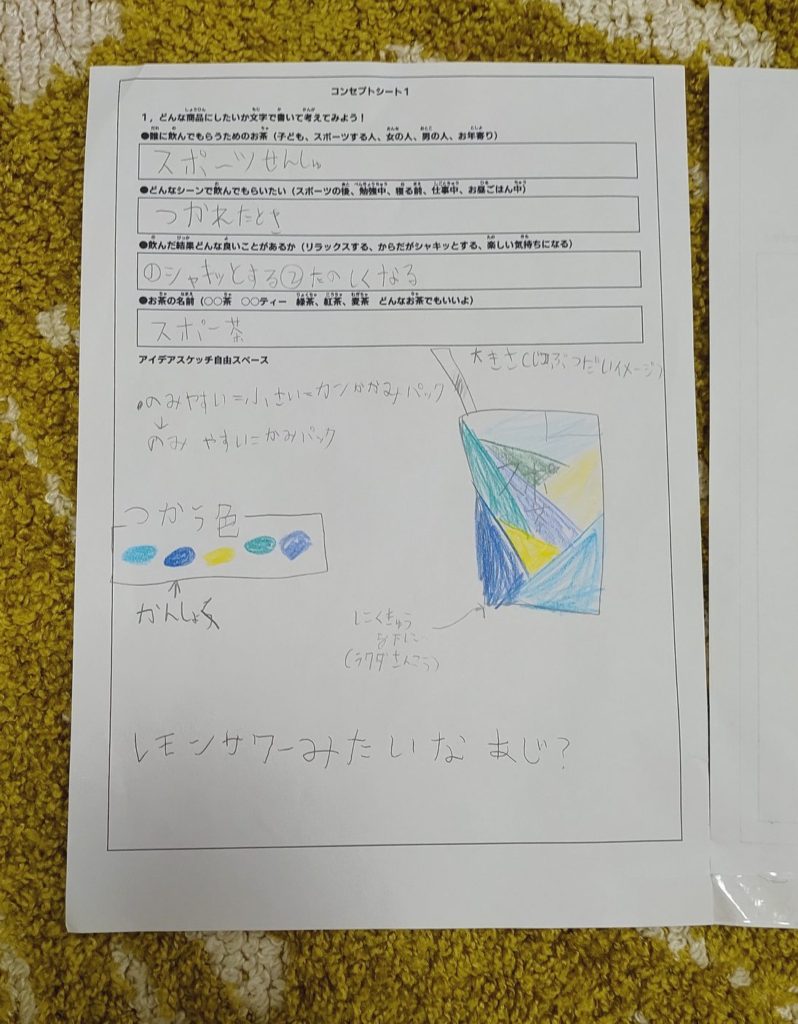 コンセプトシート1
1，どんな商品にしたいか文字で書いて考えてみよう！
●誰に飲んでもらうためのお茶（子ども、スポーツする人、女の人、男の人、お年寄り）
スポーツせんしゅ
●どんなシーンで飲んでもらいたい（スポーツの後、勉強中、寝る前、仕事中、お昼ごはん中）
つかれたとき
●飲んだ結果どんな良いことがあるか（リラックスする、からだがシャキッとする、楽しい気持ちになる）
①シャキッとする②たのしくなる
●お茶の名前（○○茶　○○ティー　緑茶、紅茶、麦茶　どんなお茶でもいいよ）
スポー茶
アイデアスケッチ自由スペース
大きさ
イメージ)
のみやすい=小さい=カンかかみパック
↓
のみやすい=かみパック
つかう色
かんしょく
(ラクダさんこう)
レモンサワーみたいなあじ?